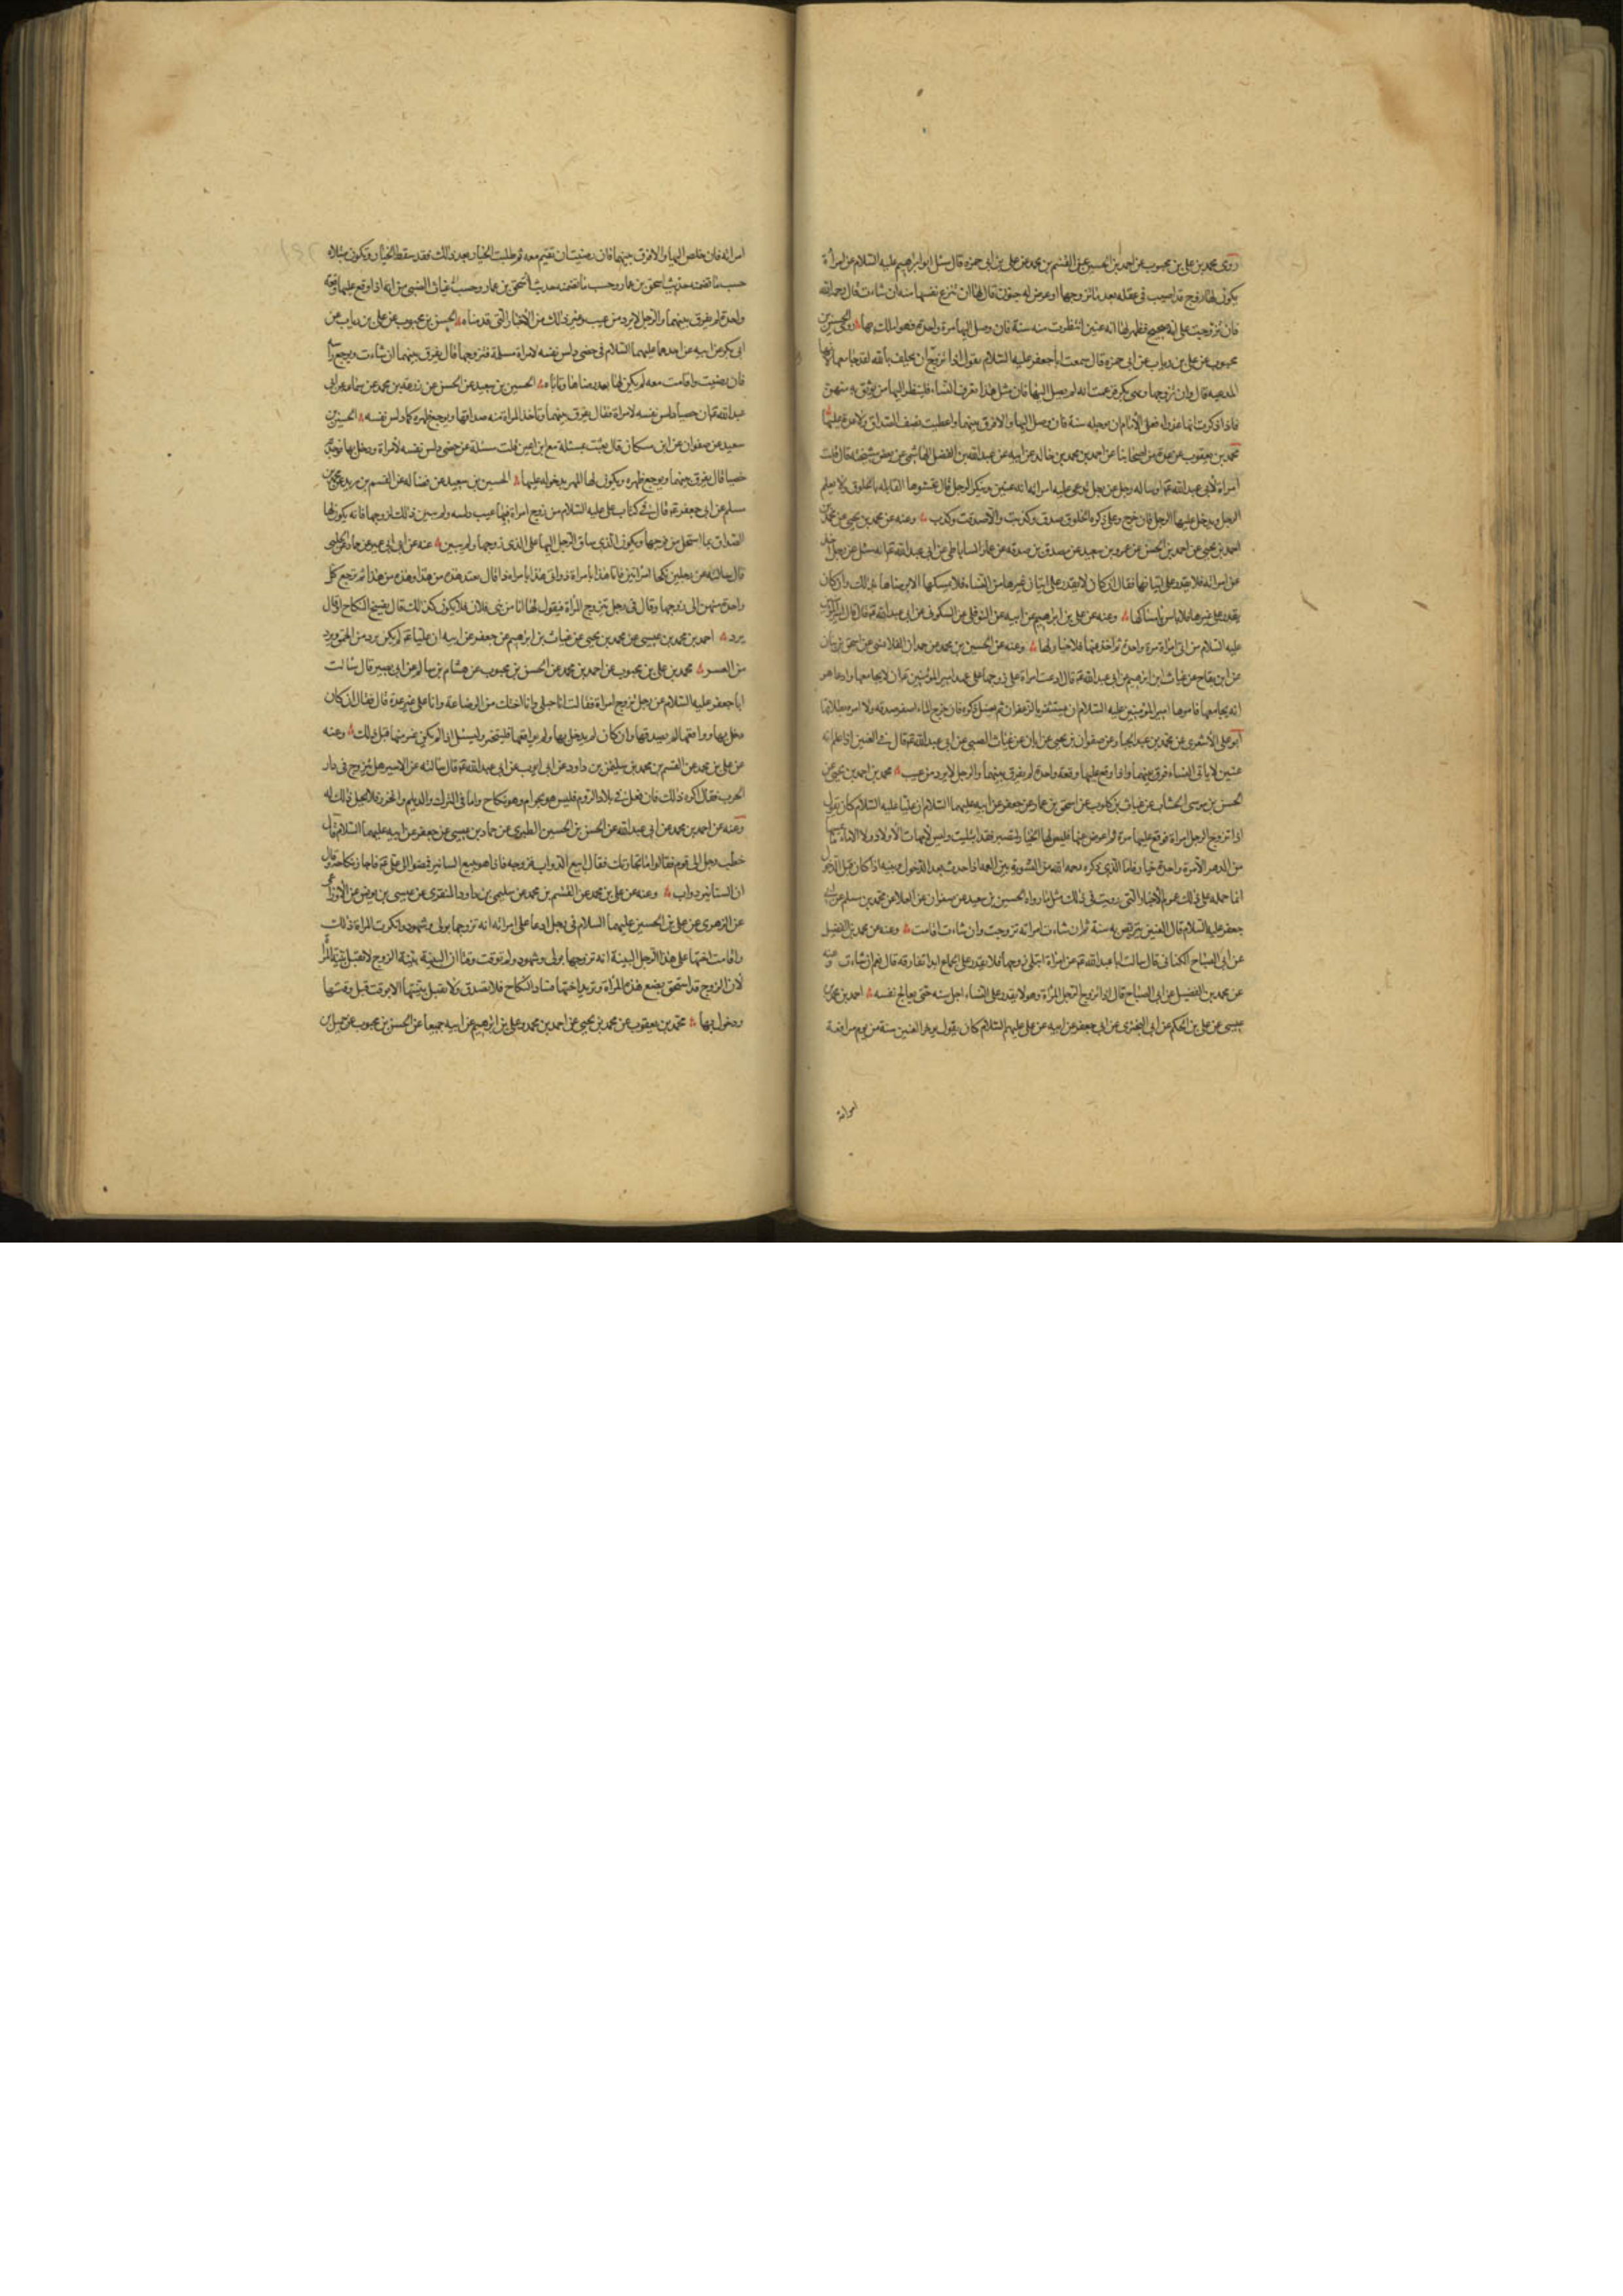 روى محمد بن علي بن محبوب عن احمد بن الحسين عن القسم بن محمد عن علي بن ابي حمزه قال سئل ابو ابراهيم عليه السلام عن امراة
يكون لها زوج قد اصيب في عقله بعد ما تزوجها او عرض له جنون قال لها ان تنزع نفسها منه ان شاءت قال رحمه الله
فان تزوجت على انه صحيح فظهر لها انه عنين انتظرت به سنة فان وصل اليها مرة واحدة فهو املك بها روى الحسن بن
محبوب عن علي بن رياب عن ابي حمزه قال سمعت ابا جعفر عليه السلام يقول اذا تزوج
المدعيه قال وان تزوجها وهي بكر فزعمت انه لم يصل اليها فان مثل هذا تعرف النساء فلينظر اليها من يوثق به منهن
فاذا ذكرت انها عذراء فعلى الامام ان يوجله سنة فان وصل اليها والا فرق بينهما واعطيت نصف الصداق ولا عدة عليها
محمد بن يعقوب عن عدة من اصحابنا عن احمد بن محمد بن خالد عن ابيه عن عبد الله بن الفضل الهاشمي عن بعض مشيخته قال قالت
امراة لابي عبد الله ع او ساله رجل عن رجل تدعي عليه امراته انه عنين وينكر الرجل قال تحشوها القابله بالخلوق ولا يعلم
الرجل ويدخل عليها الرجل فان خرج وعلى ذكره الخلوق صدق وكذبت والا صدقت وكذب وعنه عن محمد بن يحيى عن محمد بن
احمد بن يحيى عن احمد بن الحسن عن عمرو بن سعيد عن مصدق بن صدقه عن عمار الساباطي عن ابي عبد الله ع انه سئل عن رجل اخذ
عن امراته فلا يقدر على اتيانها فقال ان كان لا يقدر على اتيان غيرها من النساء فلا يمسكها الا برضاها بذلك وان كان
يقدر على غيرها فلا باس بامساكها وعنه عن علي بن ابراهيم عن ابيه عن النوفلي عن السكوني عن ابي عبد الله ع قال قال امير المؤمنين
عليه السلام من اتى امراة مرة واحدة ثم اخذ عنها فلا خيار لها وعنه عن الحسين بن محمد عن حمدان القلانسي عن اسحق بن بنان
عن ابن بقاح عن غياث ابن ابرهيم عن ابي عبد الله ع قال ادعت امراة على زوجها على عهد امير المؤمنين ع ان لا يجامعها وادعا هو
انه يجامعها فامرها امير المؤمنين عليه السلام ان تستثفر بالزعفران ثم يغسل ذكره فان خرج الماء اصفر صدقه والا امره بطلاقها
ابو علي الاشعري عن محمد بن عبد الجبار وعن صفوان بن يحيى عن ابان عن غياث الضبي عن ابي عبد الله ع قال في العنين اذا علم انه
عنين لا ياتي النساء فرق بينهما واذا وقع عليها وقعة واحدة لم يفرق بينهما والرجل لا يرد من عيب محمد بن احمد بن يحيى عن
الحسن بن موسى الخشاب عن غياث بن كلوب عن اسحق بن عمار عن جعفر عن ابيه عليهما السلام ان عليا عليه السلام كان يقول
اذا تزوج الرجل امراة فوقع عليها مرة ثم اعرض عنها فليس لها الخيار لتصبر فقد ابتليت وليس لامهات الاولاد ولا الاماء
من الدهر الا مرة واحدة خيار فاما الذي ذكره رحمه الله من التسوية بين العمد اذا حدث بعد الدخول
انما حمله على ذلك عموم الاخبار التي رويت في ذلك مثل ما رواه الحسين بن سعيد عن صفوان عن العلا عن محمد بن مسلم عن ابي
جعفر عليه السلام قال العنين يتربص به سنة ثم ان شاءت امراته تزوجت وان شاءت اقامت وعنه عن محمد بن الفضيل
عن ابي الصباح الكناني قال سالت ابا عبد الله ع عن امراة ابتلي زوجها فلا يقدر على الجماع ابدا تفارقه قال نعم ان شاءت وعنه
عن محمد بن الفضيل عن ابي الصباح قال اذا تزوج الرجل المراة وهو لا يقدر على النساء اجل سنة حتى يعالج نفسه احمد بن محمد بن
عيسى عن علي بن الحكم عن ابي البختري عن ابي جعفر عن ابيه عن علي عليهم السلام كان يقول يؤخر العنين سنة من يوم مرافعة
امراته
امراته فان خلص اليها والا فرق بينهما فان رضيت ان تقيم معه ثم طلبت الخيار بعد ذلك فقد سقط الخيار
حسب ما تضمنه حديث اسحق بن عمار وحسب غياث الضبي من انه اذا وقع عليها وقعة
واحدة لم يفرق بينهما والرجل لا يرد من عيب وغير ذلك من الاخبار التي قدمناه الحسن بن محبوب عن علي بن رياب عن
ابن بكير عن ابيه عن احدهما عليهما السلام في خصي دلس نفسه لامراة مسلمة فتزوجها قال يفرق بينهما ان شاءت ويوجع راسه
فان رضيت واقامت معه لم يكن لها بعد رضاها ان تاباه الحسين بن سعيد عن الحسن عن زرعه بن محمد عن سماعه عن ابي
عبد الله ع ان خصيا دلس نفسه لامراة فقال يفرق بينهما وتاخذ المراة منه صداقها ويوجع ظهره كما دلس نفسه الحسين بن
سعيد عن صفوان عن ابن مسكان قال بعثت بمسئلة مع ابن اعين قلت سئله عن خصي دلس نفسه لامراة ودخل بها فوجدته
خصيا قال يفرق بينهما ويوجع ظهره ويكون لها المهر بدخوله عليها الحسين بن سعيد عن فضاله عن القسم بن بريد عن محمد بن
مسلم عن ابي جعفر ع قال في كتاب علي عليه السلام من زوج امراة فيها عيب دلسه ولم يبين ذلك لزوجها فانه يكون لها
الصداق بما استحل من فرجها ويكون الذي ساق الرجل اليها على الذي زوجها ولم يبين عنه عن ابن ابي عمير عن حماد عن الحلبي
قال سالته عن رجلين نكحا امراتين فاتا هذا بامراة ذا واتى هذا بامراة ذا قال تعتد هذه من هذا وهذه من هذا ثم ترجع كل
واحدة منهن الى زوجها وقال في رجل تزوج المراة فيقول لها انا من بني فلان فلا يكون كذلك قال يفسخ النكاح او قال
يرد احمد بن محمد بن عيسى عن محمد بن يحيى عن غياث بن ابرهيم عن جعفر عن ابيه ان عليا ع لم يكن يرد من الحمق ويرد
من العسر محمد بن علي بن محبوب عن احمد بن محمد عن الحسن بن محبوب عن هشام بن سالم عن ابي بصير قال سالت
ابا جعفر عليه السلام عن رجل تزوج امراة فقالت انا حبلى وانا اختك من الرضاعة وانا على غير عدة قال فقال ان كان
دخل بها وواقعها فلا يصدقها وان كان لم يدخل بها ولم يواقعها فليختبر وليسئل اذا لم يكن عرفها قبل ذلك وعنه
عن علي بن محمد عن القسم بن محمد بن سليمن بن داود عن ابي ايوب عن ابي عبد الله ع قال سالته عن الاسير هل يتزوج في دار
الحرب فقال اكره ذلك فان فعل في بلاد الروم فليس هو بحرام وهو نكاح واما في الترك والديلم والخزر فلا يحل ذلك له
وعنه عن احمد بن محمد عن ابي عبد الله عن الحسن بن الحسين الطبري عن حماد بن عيسى عن جعفر عن ابيه عليهما السلام قال
خطب رجل الى قوم فقالوا ما تجارتك فقال ابيع الدواب فزوجوه فاذا هو يبيع السنانير فمضوا الى علي ع فاجاز نكاحه وقال
ان السنانير دواب وعنه عن علي بن محمد عن القسم بن محمد عن سليمن بن داود المنقري عن عيسى بن يونس عن الاوزاعي
عن الزهري عن علي بن الحسين عليهما السلام في رجل ادعا على امراة انه تزوجها بولي وشهود وانكرت المراة ذلك
واقامت اختها على هذا الرجل البينة انه تزوجها بولي وشهود ولم توقت وقتا ان البينة بينة الزوج لا تقبل بينة المراة
لان الزوج قد استحق بضع هذه المراة وتريد اختها فساد النكاح فلا تصدق ولا تقبل بينتها الا بوقت قبل وقتها
ودخول بها محمد بن يعقوب عن محمد بن يحيى عن احمد بن محمد وعلي بن ابرهيم عن ابيه جميعا عن الحسن بن محبوب عن جميل بن